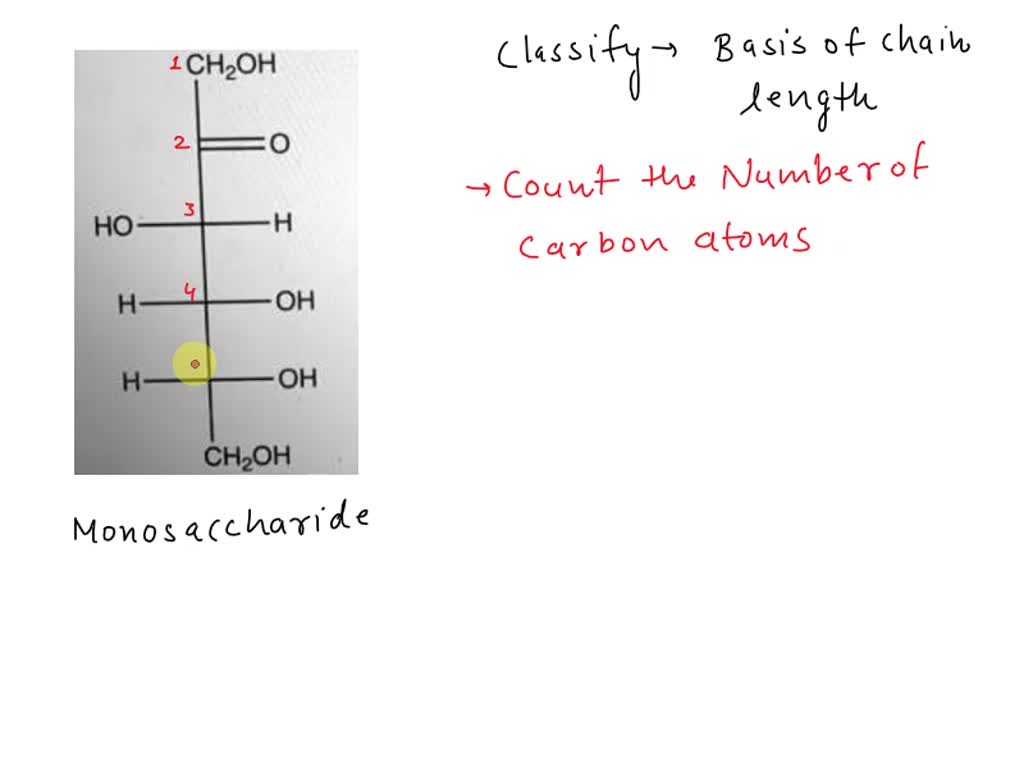 1 CH₂OH
2 O
3
HO H
4
H OH
H OH
CH₂OH
Monosaccharide
Classify → Basis of chain
length
→ Count the Number of
Carbon atoms